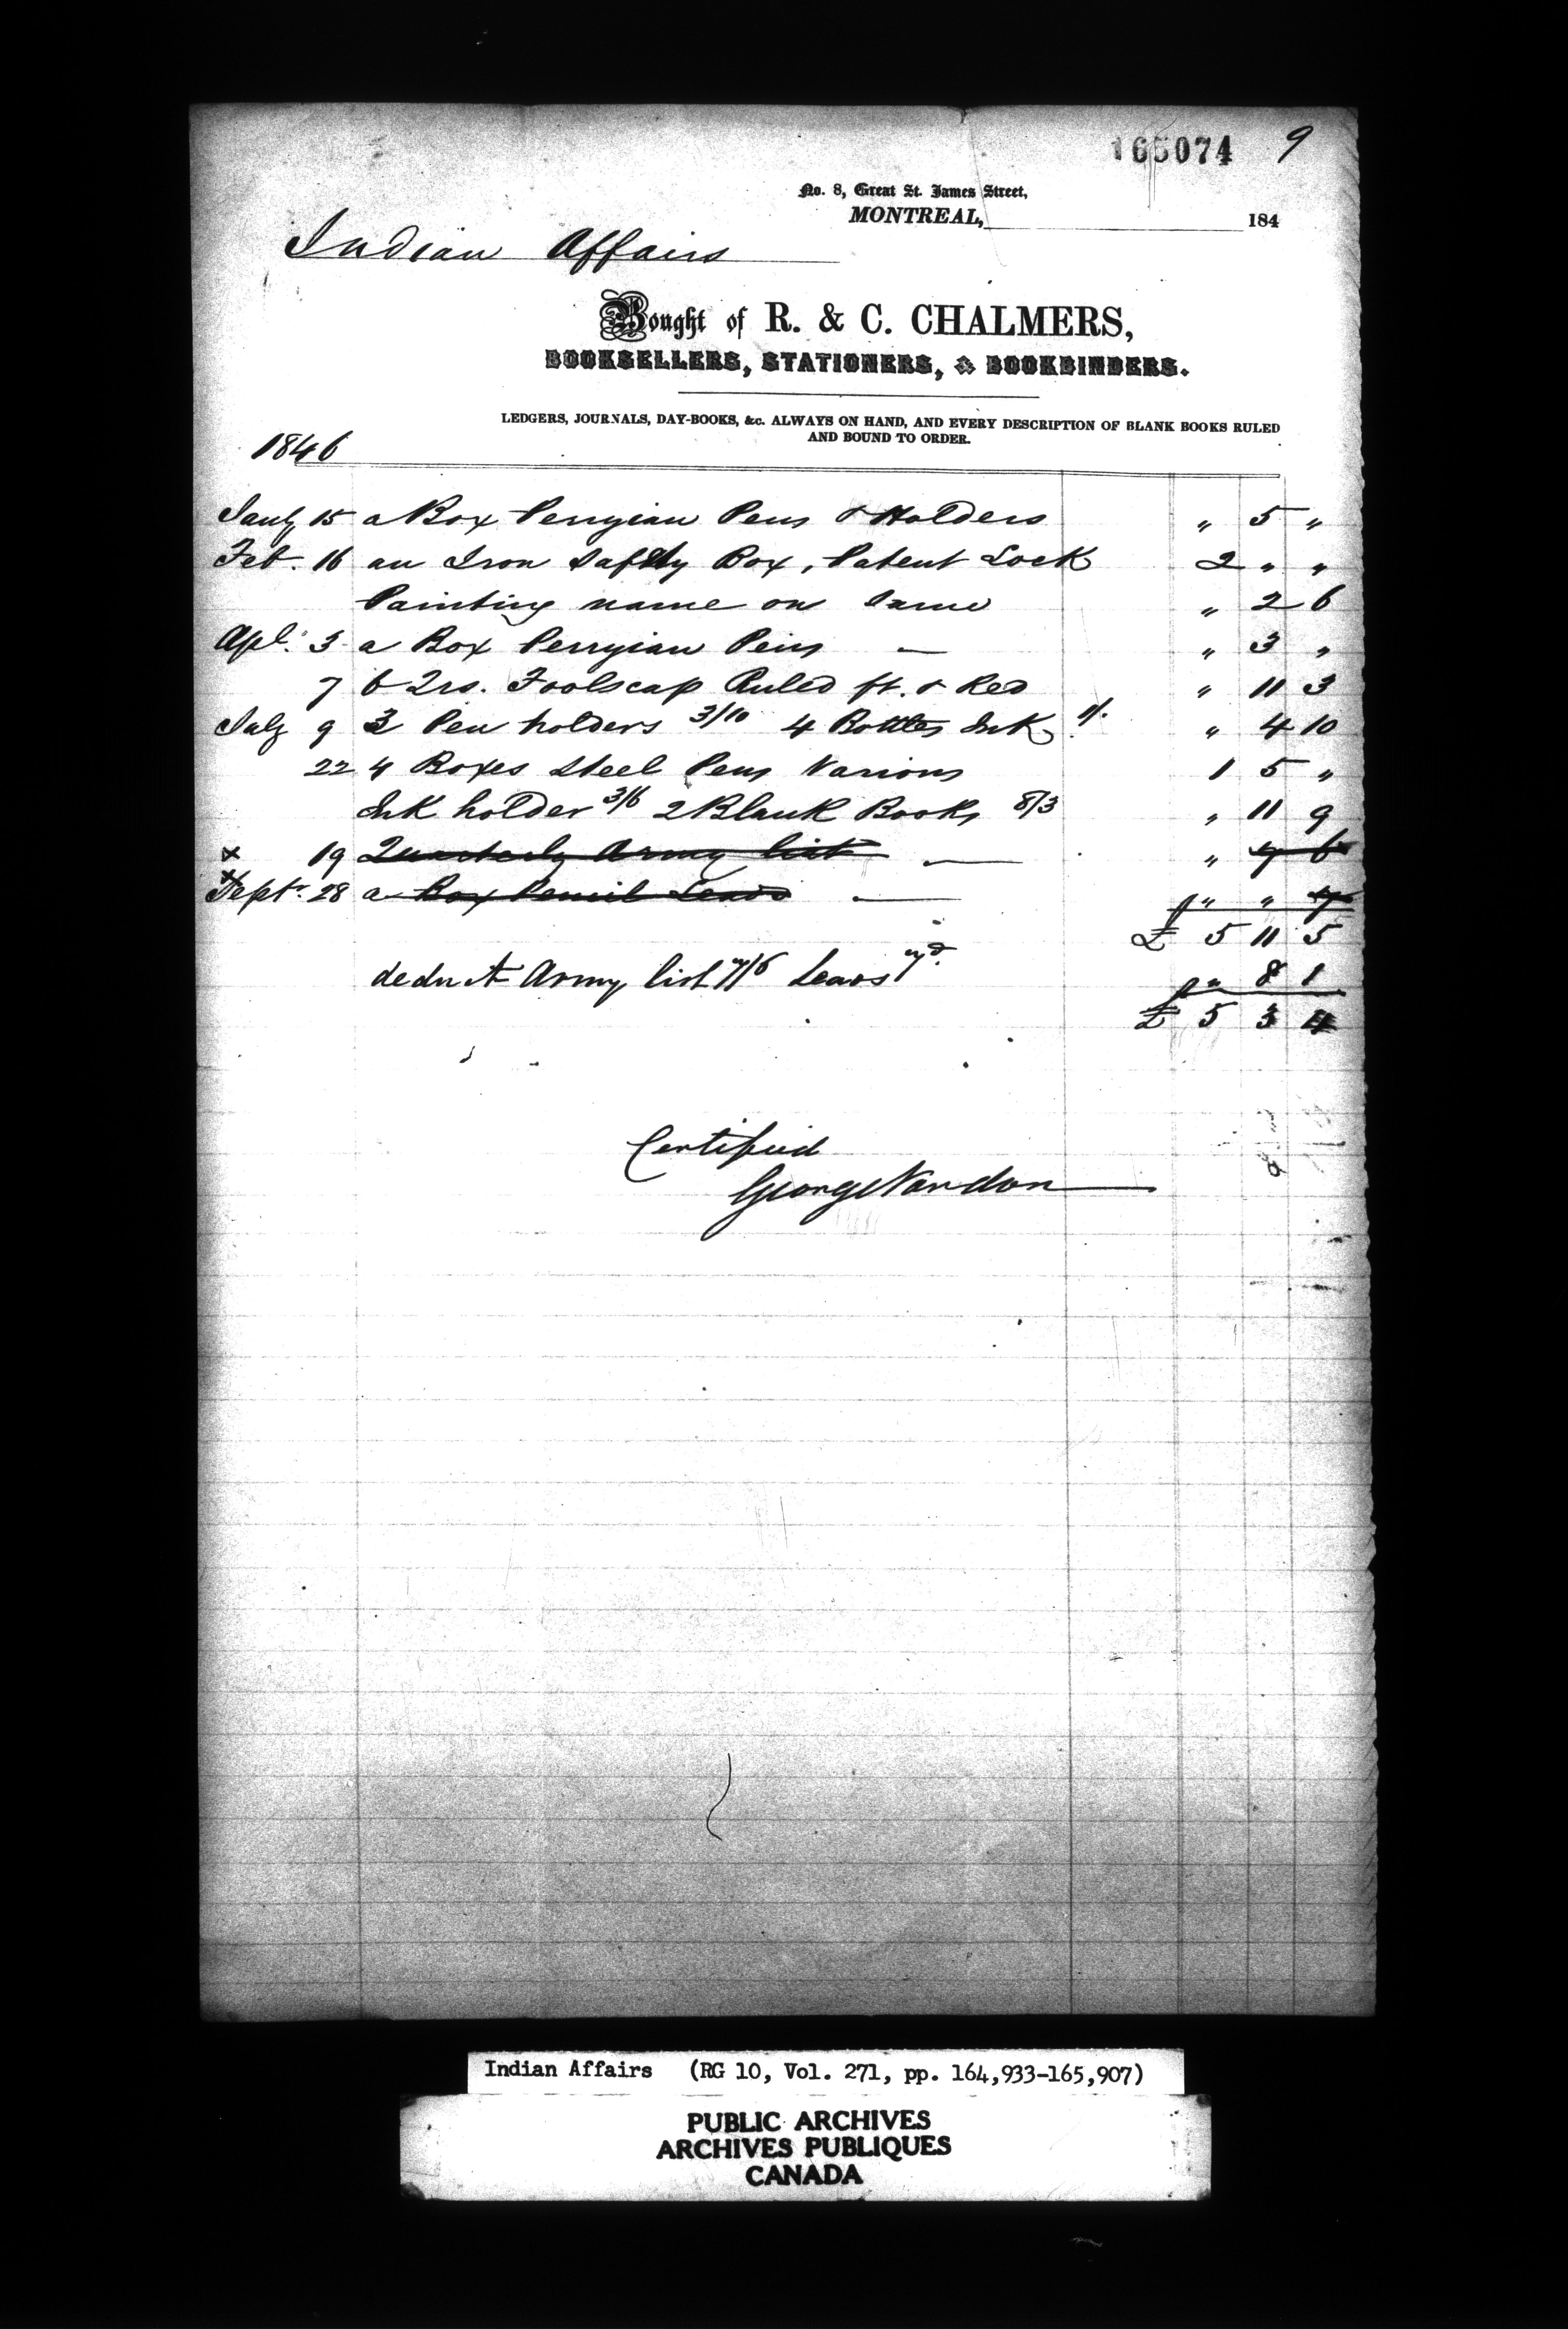 165074 9
No. 8, Great St. James Street,
MONTREAL, 184
Indian Affairs
Bought of R. & C. CHALMERS,
BOOKSELLERS, STATIONERS, & BOOKBINDERS.
LEDGERS, JOURNALS, DAY-BOOKS, &c. ALWAYS ON HAND, AND EVERY DESCRIPTION OF BLANK BOOKS RULED
AND BOUND TO ORDER.
1846
Jany 15 a Box Perryian Pens & Holders " 5 "
Feb. 16 an Iron Safety Box, Patent Lock 2 " "
Painting name on Same " 2 6
Apl. 3 a Box Perryian Pens " 3 "
7 6 Qrs. Foolscap Ruled ft. & Red " 11 3
July 9 3 Pen holders 3/10 4 Bottles Ink 1/. " 4 10
22 4 Boxes Steel Pens Various 1 5 "
Ink holder 3/6 2 Blank Books 8/3 " 11 9
x 19 Quarterly Army list " 7 6
x Sept. 28 a Box Pencil Leads " " 7
£ 5 11 5
deduct Army list 7/6 Leads 7d. " 8 1
£ 5 3 4
Certified
George Vardon
Indian Affairs (RG 10, Vol. 271, pp. 164,933-165,907)
PUBLIC ARCHIVES
ARCHIVES PUBLIQUES
CANADA